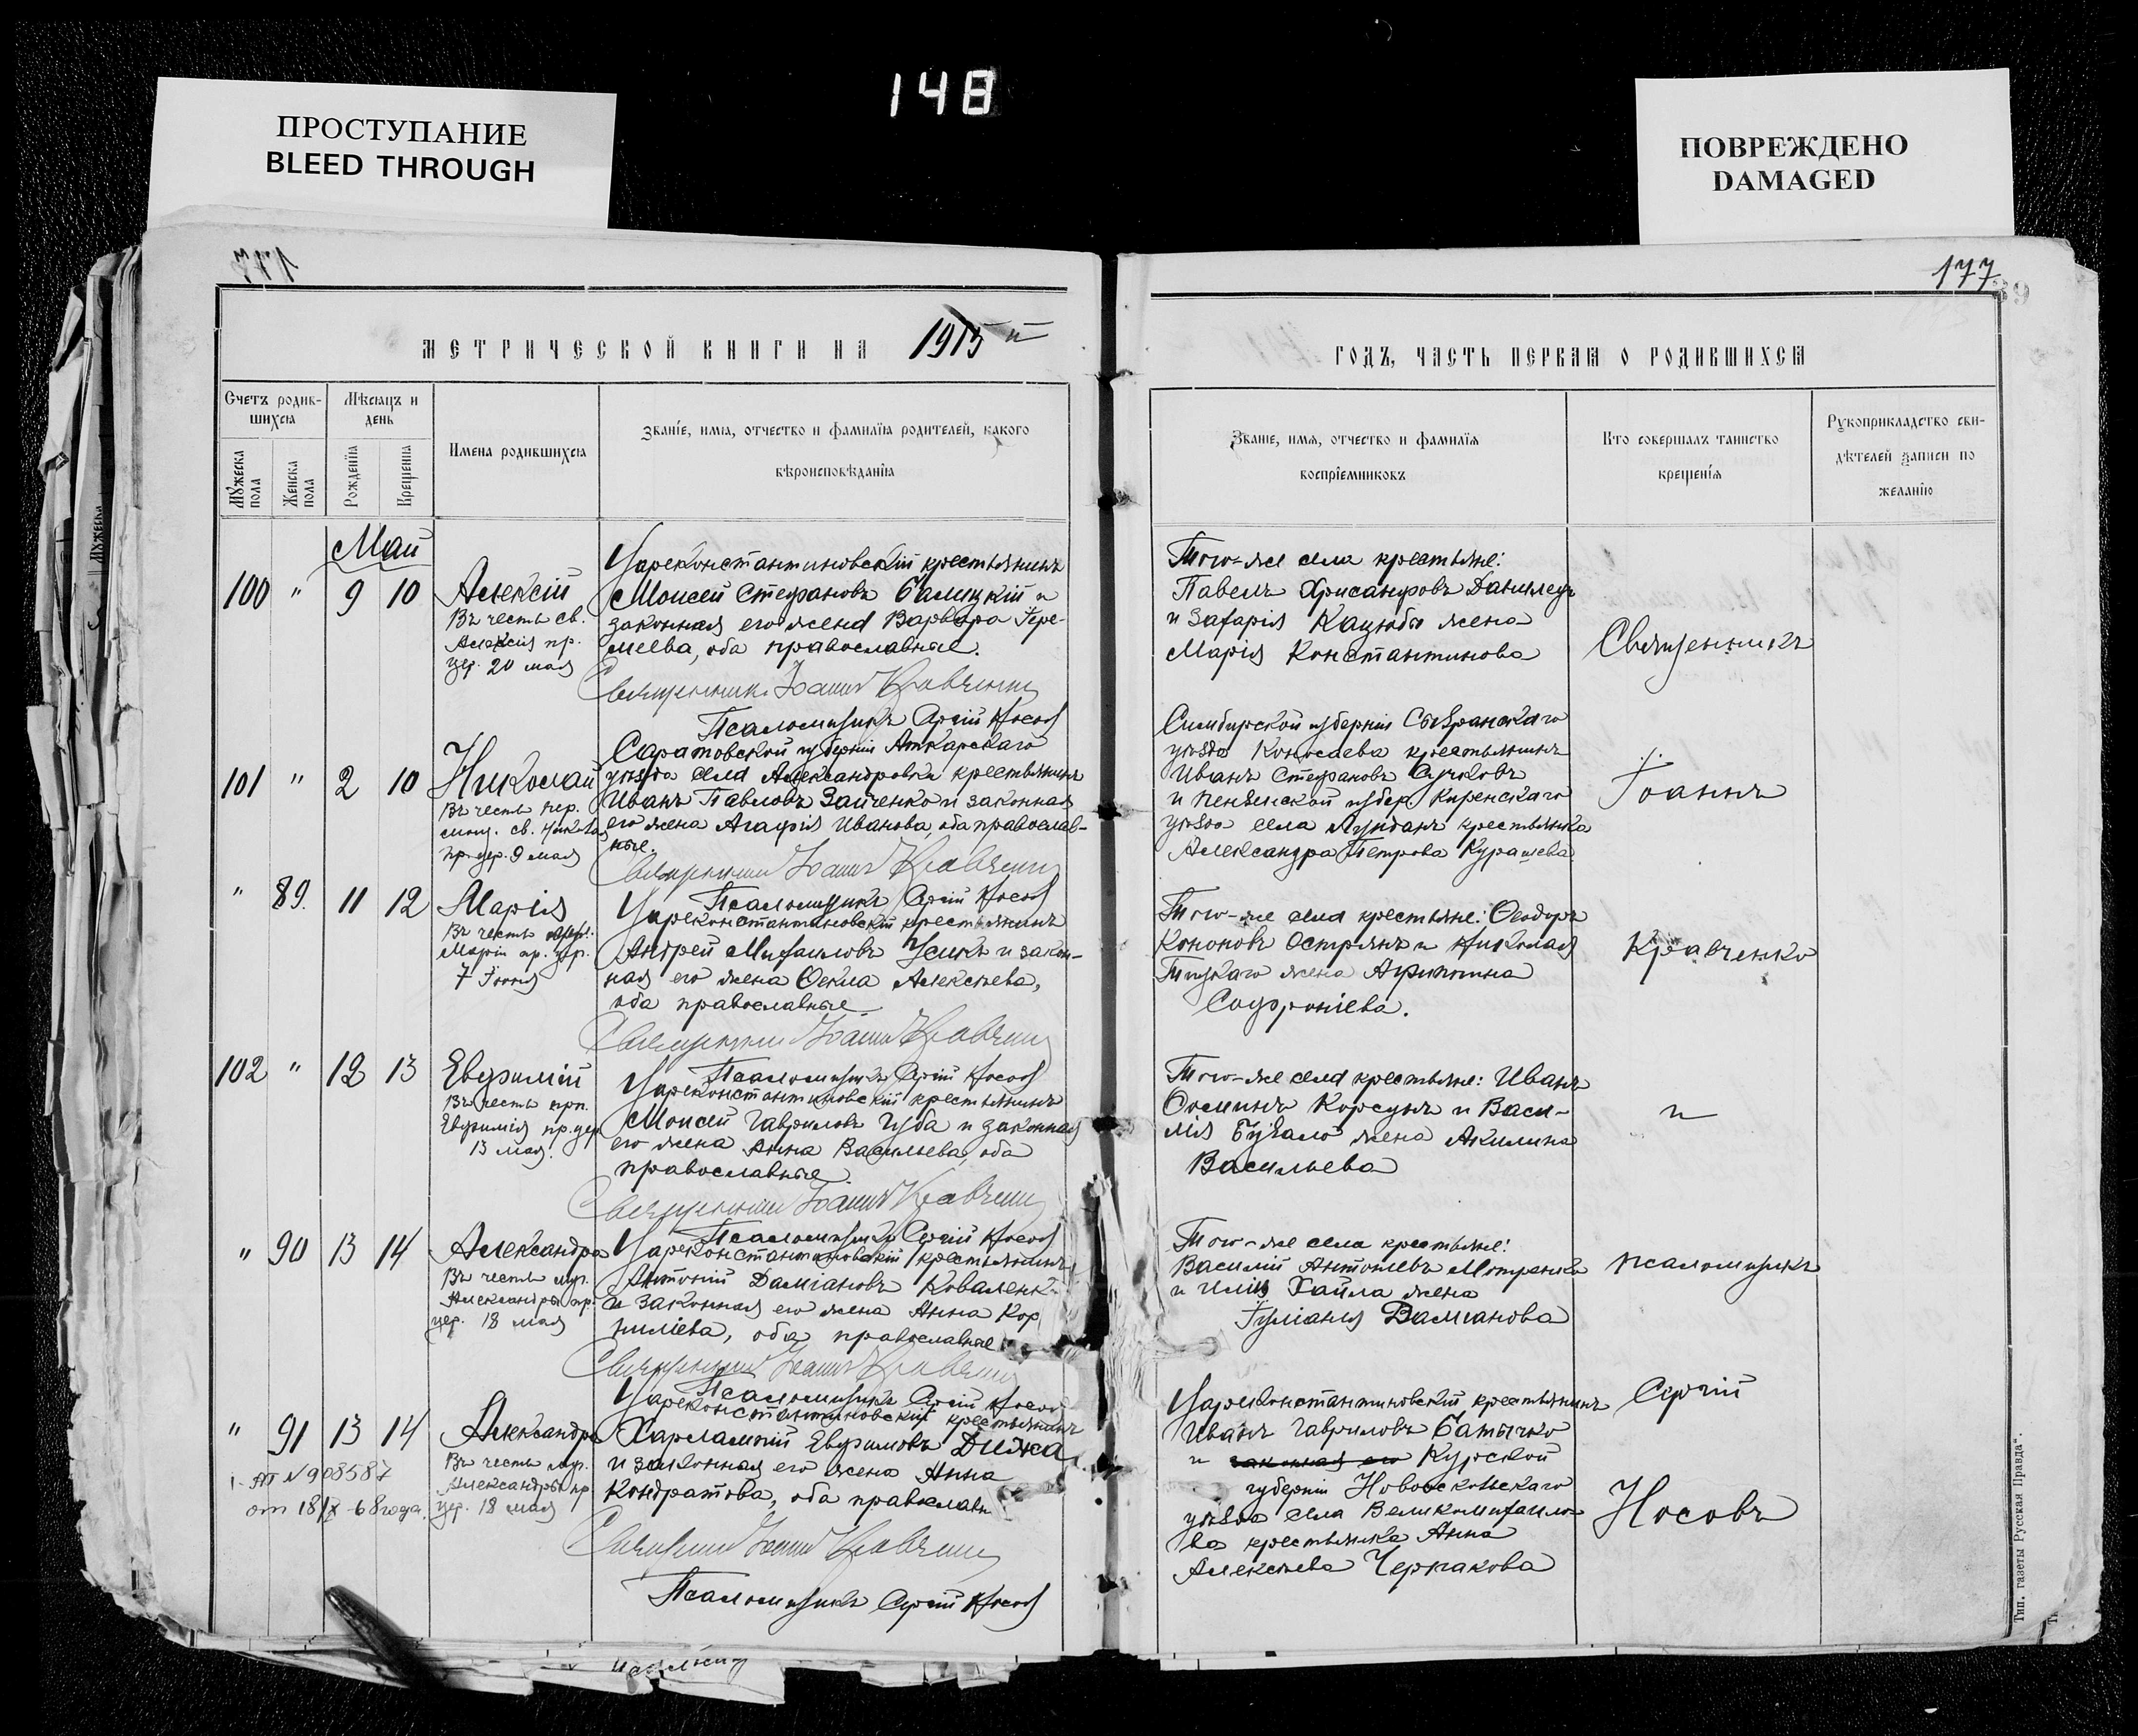 148
ПРОСТУПАНИЕ
BLEED THROUGH
ПОВРЕЖДЕНО
DAMAGED
177
МЕТРИЧЕСКОЙ КНИГИ НА 1915 й
ГОДЪ, ЧАСТЬ ПЕРВАЯ О РОДИВШИХСЯ
Счетъ родив-
шихся
Мѣсяцъ и
день
Имена родившихся
Званіе, имя, отчество и фамилія родителей, какого
вѣроисповѣданія
Мужеска
пола
Женска
пола
Рожденія
Крещенія
Званіе, имя, отчество и фамилія
воспріемниковъ
Кто совершалъ таинство
крещенія
Рукоприкладство сви-
дѣтелей записи по
желанію
Май
100 " 9 10
Алексій
Въ честь св.
Алексія пр.
цер. 20 мая
Цареконстантиновскій крестьянинъ
Моисей Стефановъ Балицкій и
законная его жена Варвара Іере-
міева, оба православные.
Священникъ Іоаннъ Кравченко
Псаломщикъ Сергій Носовъ
Того-же села крестьяне:
Павелъ Хрисанфовъ Данилецъ
и Захарія Кацюбы жена
Марія Константинова
Священникъ
101 " 2 10
Николай
Въ честь пер.
мощ. св. Николая
пр. цер. 9 мая
Саратовской губерніи Аткарскаго
уѣзда села Александровки крестьянинъ
Иванъ Павловъ Зайченко и законная
его жена Агафія Иванова, оба православ-
ные.
Священникъ Іоаннъ Кравченко
Псаломщикъ Сергій Носовъ
Симбирской губерніи Сызранскаго
уѣзда крестьянинъ
Иванъ Стефановъ Сучковъ
и Пензенской губер. Керенскаго
уѣзда села крестьянка
Александра Петрова Курашева
Іоаннъ
" 89. 11 12
Марія
Въ честь
Маріи пр. цер.
7 Іюня
Цареконстантиновскій крестьянинъ
Андрей Михаиловъ Усикъ и закон-
ная его жена Ѳекла Алексѣева,
оба православные.
Священникъ Іоаннъ Кравченко
Псаломщикъ Сергій Носовъ
Того-же села крестьяне: Ѳеодоръ
Кононовъ Острянъ и Николая
жена Агрипина
Софроніева.
Кравченко
102 " 12 13
Евфимій
Въ честь прп.
Евфимія пр. цер.
13 мая.
Цареконстантиновскій крестьянинъ
Моисей Гавриловъ Губа и законная
его жена Анна Васильева, оба
православные.
Священникъ Іоаннъ Кравченко
Псаломщикъ Сергій Носовъ
Того-же села крестьяне: Иванъ
Ѳоминъ Корсунъ и Васи-
лія Бувало жена Акилина
Васильева
и
" 90 13 14
Александра
Въ честь муч.
Александры пр.
цер. 18 мая
Цареконстантиновскій крестьянинъ
Антоній Даміановъ Коваленко
и законная его жена Анна Кор
ниліева, оба православные
Священникъ Іоаннъ Кравченко
Псаломщикъ Сергій Носовъ
Того-же села крестьяне:
Василій Антоніевъ Мотренко
и Иліи Хайла жена
Іуліанія Даміанова
псаломщикъ
" 91 13 14
Александра
Въ честь муч.
Александры пр.
цер. 18 мая
I-АП №908587
от 18/IX-68 года.
Цареконстантиновскій крестьянинъ
Харлампій Евфимовъ Дижа
и законная его жена Анна
Кондратова, оба православн
Священникъ Іоаннъ Кравченко
Псаломщикъ Сергій Носовъ
Цареконстантиновскій крестьянинъ
Иванъ Гавриловъ Батычко
и законная его Курской
губерніи Новооскольскаго
уѣзда села Великомихаило-
ва крестьянка Анна
Алексѣева Черпакова
Сергій
Носовъ
Тип. газеты „Русская Правда".